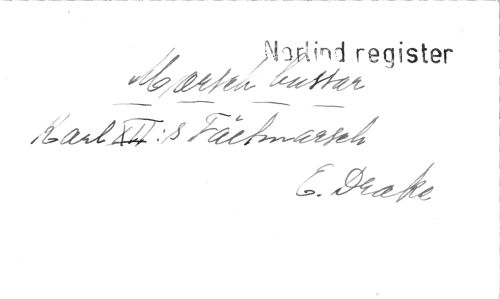 Norlind register
Marsch bussar
Karl XII:s Fältmarsch
E. Drake